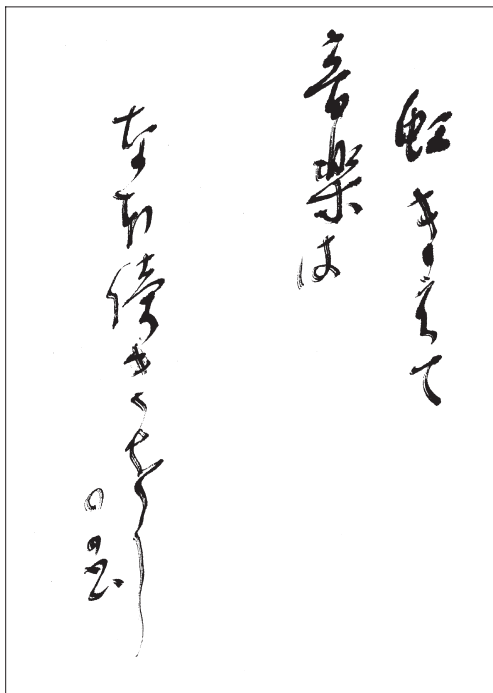 虹きえて
音楽は
なほ続きをり